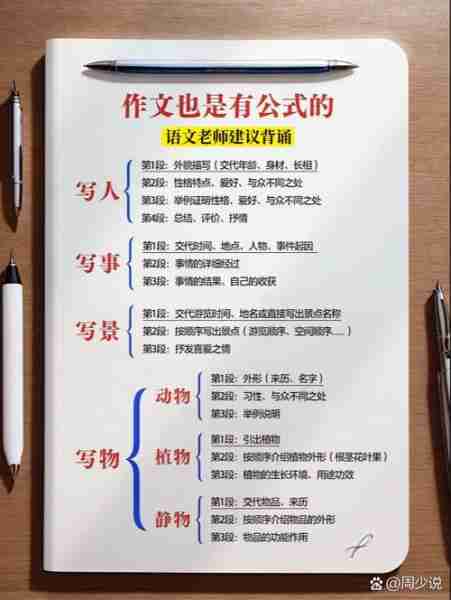 作文也是有公式的
语文老师建议背诵
写人
第1段：外貌描写（交代年龄、身材、长相）
第2段：性格特点、爱好、与众不同之处
第3段：举例证明性格、爱好、与众不同之处
第4段：总结、评价、抒情
写事
第1段：交代时间、地点、人物、事件起因
第2段：事情的详细经过
第3段：事情的结果、自己的收获
写景
第1段：交代游览时间、地名或直接写出景点名称
第2段：按顺序写出景点（游览顺序、空间顺序.....）
第3段：抒发喜爱之情
写物
动物
第1段：外形（来历、名字）
第2段：习性、与众不同之处
第3段：举例说明
植物
第1段：引出植物
第2段：按顺序介绍植物外形（根茎花叶果）
第3段：植物的生长环境、用途功效
静物
第1段：交代物品、来历
第2段：按顺序介绍物品的外形
第3段：物品的功能作用
@周少说